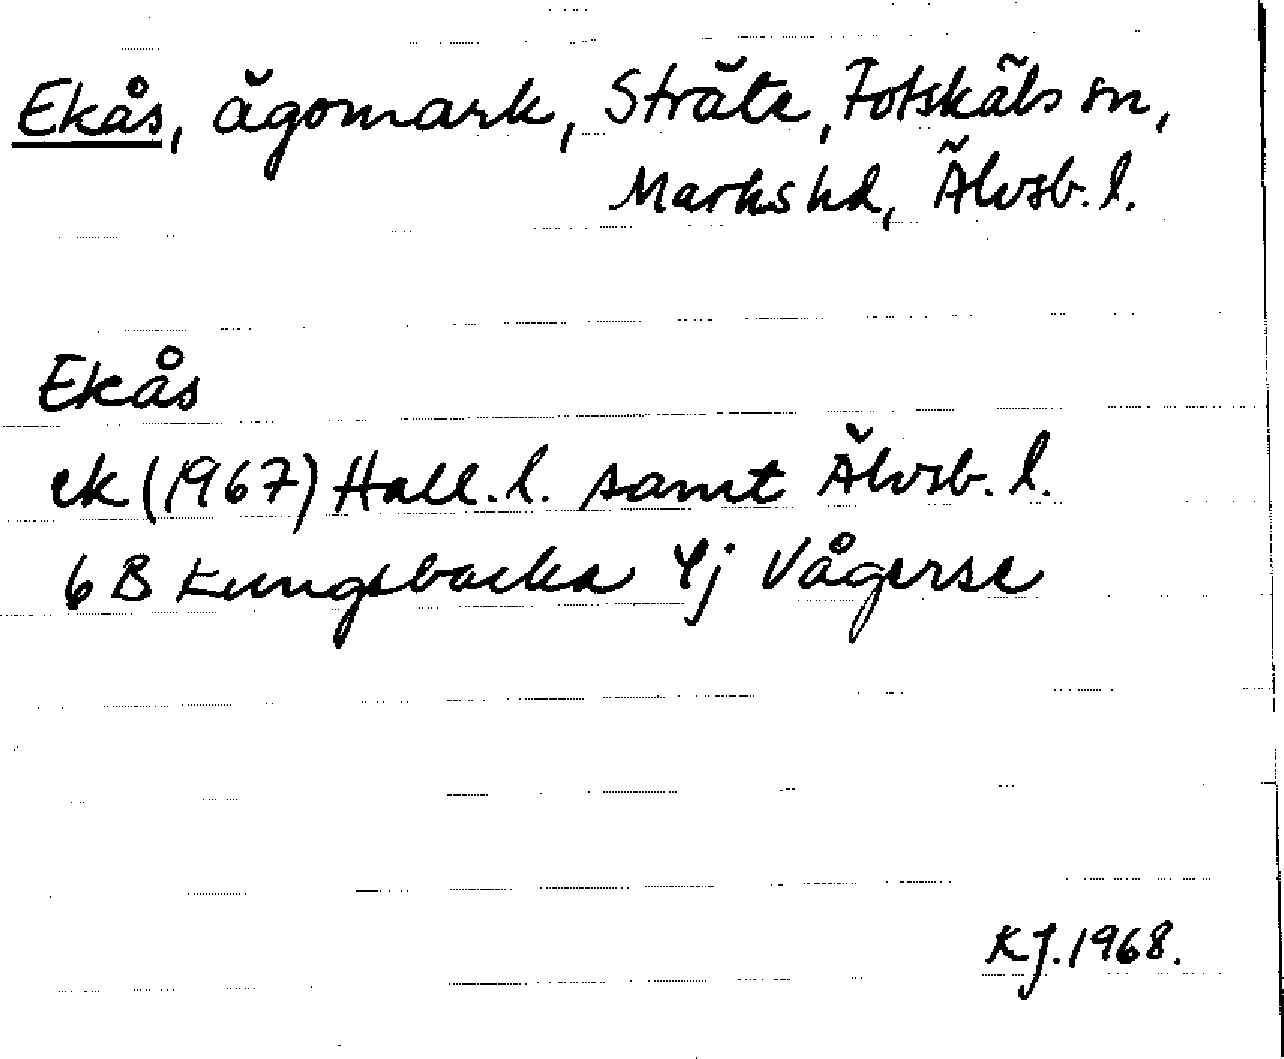 Ekås, ägomark, Sträte, Fotskäls sn,
Marks hd, Älvsb. l.
Ekås
ek (1967) Hall. l. samt Älvsb. l.
6 B Kungsbacka 4j Vågerse
KJ. 1968.